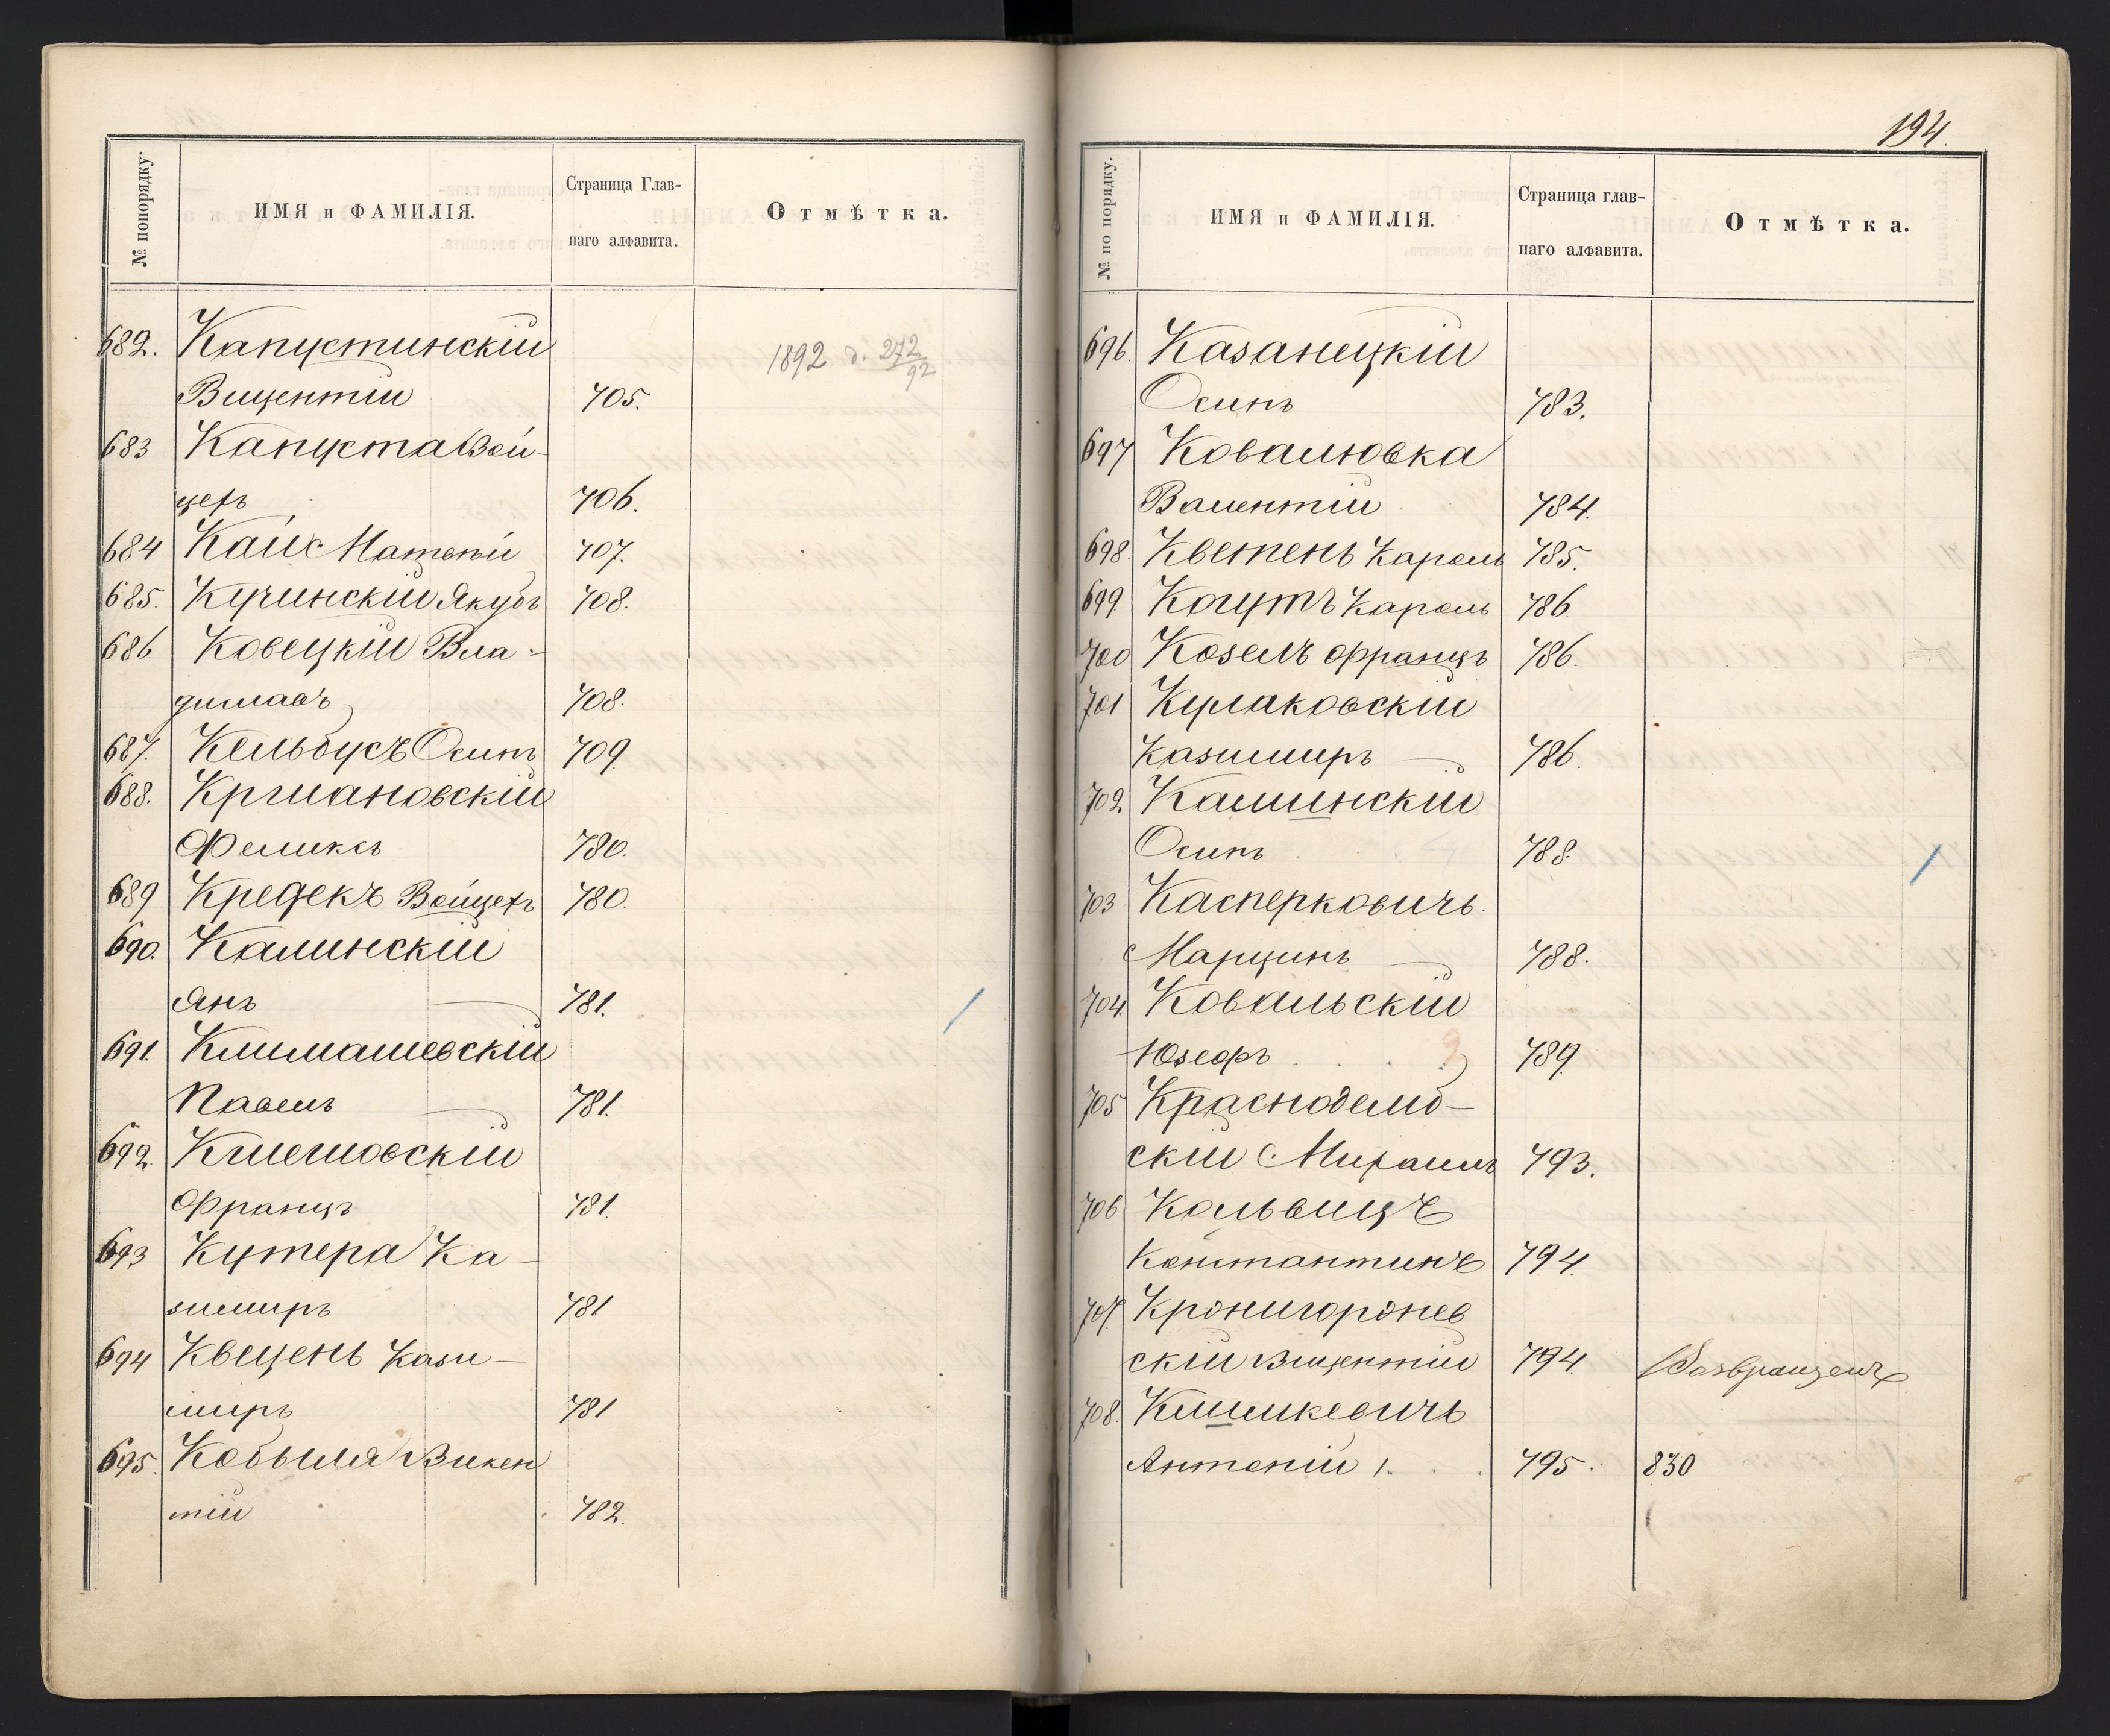 № попорядку.
ИМЯ и ФАМИЛІЯ.
Страница Глав-
наго алфавита.
Отмѣтка.
682. Капустинскій 1892 д. 272/92
Вицентій 705.
683 Капуста Вой-
цехъ 706.
684 Каис Матеній 707.
685. Кучинскій Якубъ 708.
686 Ковецкій Вла-
диславъ 708.
687. Кельбусъ Осипъ 709
688. Кржиановскій
Феликсъ 780.
689 Кредекъ Войцехъ 780.
690. Калинскій
Янъ 781.
691. Климашевскій
Павелъ 781.
692. Клешовскій
Францъ 781.
693 Кутера Ка-
зимиръ 781
694 Квецень Кази-
миръ 781
695. Кобыля Викен
тій 782.
194.
№ по порядку.
ИМЯ и ФАМИЛІЯ.
Страница глав-
наго алфавита.
Отмѣтка.
696. Казанецкій
Осипъ 783.
697 Ковалювка
Валентій 784.
698. Кветень Кароль 785.
699. Когутъ Кароль 786.
700 Козелъ Францъ 786.
701 Кулаковскій
Казимиръ 786.
702 Калинскій
Осипъ 788.
703 Касперковичъ.
Марцинъ 788.
704. Ковальскій
Юзефъ 789
705 Краснодемб-
скій Михаилъ 793.
706 Кольвицъ
Константинъ 794.
707. Кронигоронев
скій Вицентій 794. Возвращенъ
708. Климкевичъ
Антоній 1. 795. 830